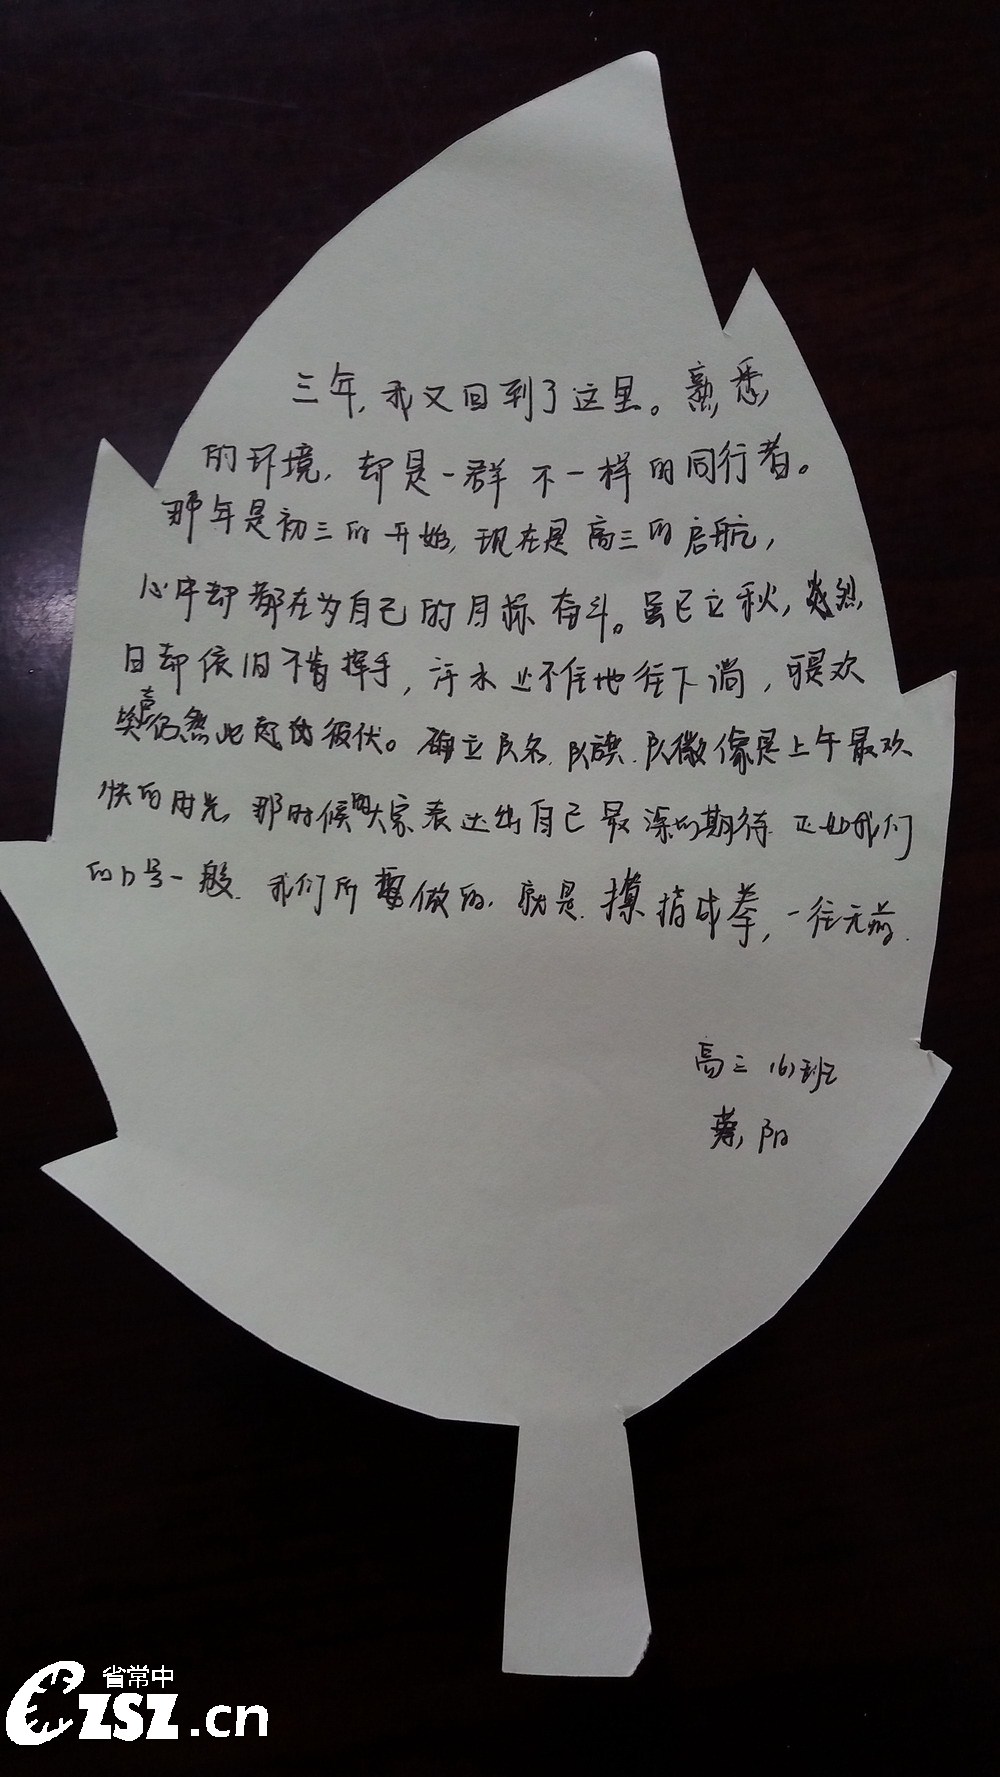 三年,我又回到了这里。熟悉
的环境,却是一群不一样的同行者。
那年是初三的开始,现在是高三的启航,
心中却都在为自己的目标奋斗。虽已立秋,炎烈
日却依旧不肯挥手,汗水止不住地往下淌,可是欢
笑声仍然此起彼伏。确立队名、队旗、队徽像是上午最欢
快的时光,那时候的大家表达出自己最深的期待.正如我们
的口号一般.我们所要做的,就是.攥指成拳,一往无前.
高三(6)班
阳
省常中
CZSZ.cn